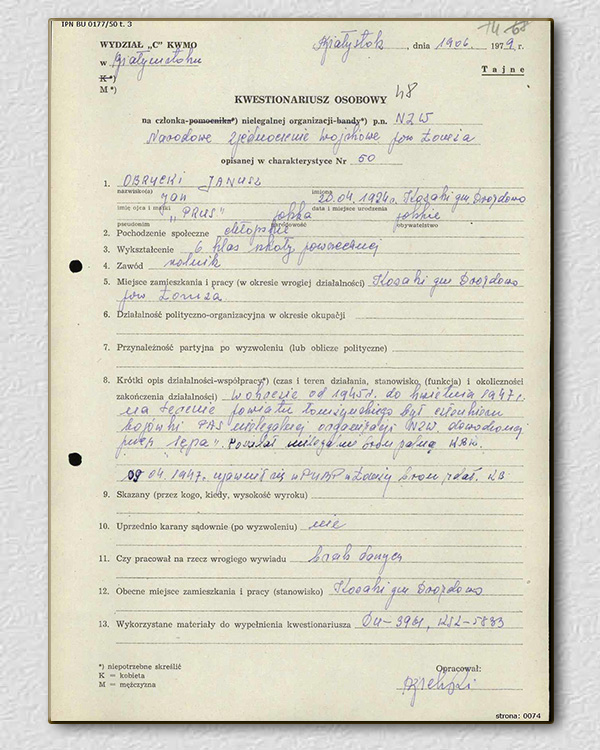 IPN BU 0177/50 t. 3
WYDZIAŁ „C" KWMO
Białystok, dnia 1906 1979 r.
w Białymstoku
K*)
M*)
Tajne
KWESTIONARIUSZ OSOBOWY 48
na członka-pomocnika*) nielegalnej organizacji-bandy*) p.n. NZW
Narodowe Zjednoczenie Wojskowe pow Łomża
opisanej w charakterystyce Nr 50
1. OBRYCKI JANUSZ
nazwisko(a) imiona
Jan 20.04.1924r. Kozaki gm Drozdowo
imię ojca i matki data i miejsce urodzenia
„PRUS" polska polskie
pseudonim narodowość obywatelstwo
2. Pochodzenie społeczne chłopskie
3. Wykształcenie 6 klas szkoły powszechnej
4. Zawód rolnik
5. Miejsce zamieszkania i pracy (w okresie wrogiej działalności) Kozaki gm Drozdowo
pow Łomża
6. Działalność polityczno-organizacyjna w okresie okupacji
7. Przynależność partyjna po wyzwoleniu (lub oblicze polityczne)
8. Krótki opis działalności-współpracy*) (czas i teren działania, stanowisko, (funkcja) i okoliczności
zakończenia działalności) W okresie od 1945r. do kwietnia 1947r.
na terenie powiatu łomżyńskiego był członkiem
bojówki PAS nielegalnej organizacji NZW dowodzonej
przez „Sępa". Posiadał nielegalnie broń palną KBK.
09 04.1947. ujawnił się w PUBP w Łomży broń zdał. KB
9. Skazany (przez kogo, kiedy, wysokość wyroku)
10. Uprzednio karany sądownie (po wyzwoleniu) nie
11. Czy pracował na rzecz wrogiego wywiadu brak danych
12. Obecne miejsce zamieszkania i pracy (stanowisko) Kozaki gm Drozdowo
13. Wykorzystane materiały do wypełnienia kwestionariusza
*) niepotrzebne skreślić
K = kobieta
M = mężczyzna
Opracował:
strona: 0074